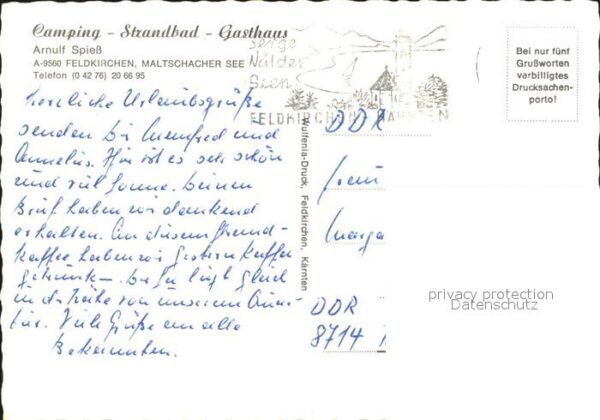 Camping - Strandbad - Gasthaus
Arnulf Spieß
A-9560 FELDKIRCHEN, MALTSCHACHER SEE
Telefon (0 42 76) 20 66 95
Berge
Wälder
Seen
FELDKIRCHEN KÄRNTEN
Bei nur fünf
Grußworten
verbilligtes
Drucksachen-
porto!
Herzliche Urlaubsgrüße
senden Manfred und
Annelies. Hier ist es sehr schön
und viel Sonne. Deinen
Brief haben wir dankend
erhalten. An diesem
kaffee haben wir gestern Kaffee
getrunken. liegt gleich
in d. Nähe von unserem
Viele Grüße an alle
Bekannten.
Wulfenia-Druck, Feldkirchen, Kärnten
DDR
Frau
DDR
8714
privacy protection
Datenschutz